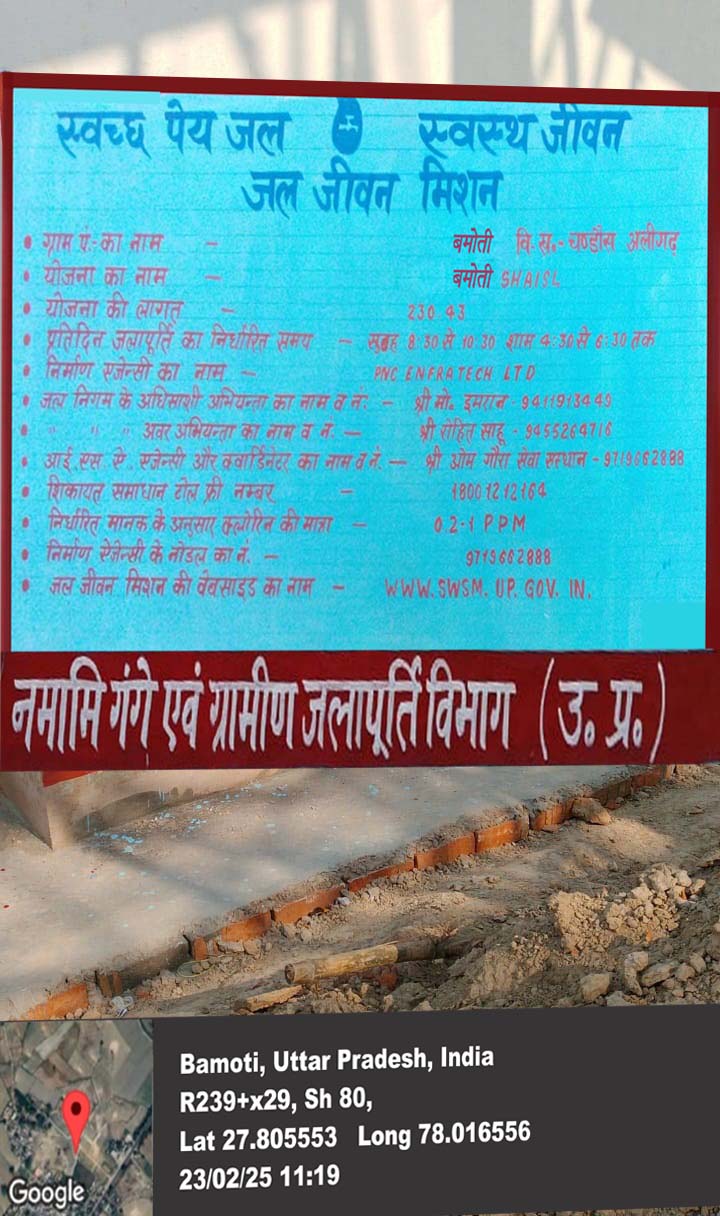 स्वच्छ पेय जल स्वस्थ जीवन
जल जीवन मिशन
• ग्राम पं.-का नाम - बमोती वि.ख.- चण्डौस अलीगढ़
• योजना का नाम - बमोती SHAISL
• योजना की लागत - 230.43
• प्रतिदिन जलापूर्ति का निर्धारित समय - सुबह 8:30 से 10:30 शाम 4:30 से 6:30 तक
• निर्माण एजेन्सी का नाम - PNC ENFRATECH LTD
• जल निगम के अधिसाशी अभियन्ता का नाम व नं:- श्री मो. इमरान - 9411913449
• " " " अवर अभियन्ता का नाम व नं. - श्री रोहित साहू - 9455264716
• आई. एस. ऐ. एजेन्सी और क्वार्डिनेटर का नाम व नं. - श्री ओम गौरा सेवा सस्थान - 9719662888
• शिकायत समाधान टोल फ्री नम्बर - 18001212164
• निर्धारित मानक के अनुसार क्लोरिन की मात्रा - 0.2-1 PPM
• निर्माण ऐजेन्सी के नोडल का नं. - 9719662888
• जल जीवन मिशन की वेबसाइड का नाम - WWW.SWSM.UP.GOV.IN.
नमामि गंगे एवं ग्रामीण जलापूर्ति विभाग (उ. प्र.)
Bamoti, Uttar Pradesh, India
R239+x29, Sh 80,
Lat 27.805553 Long 78.016556
23/02/25 11:19
Google